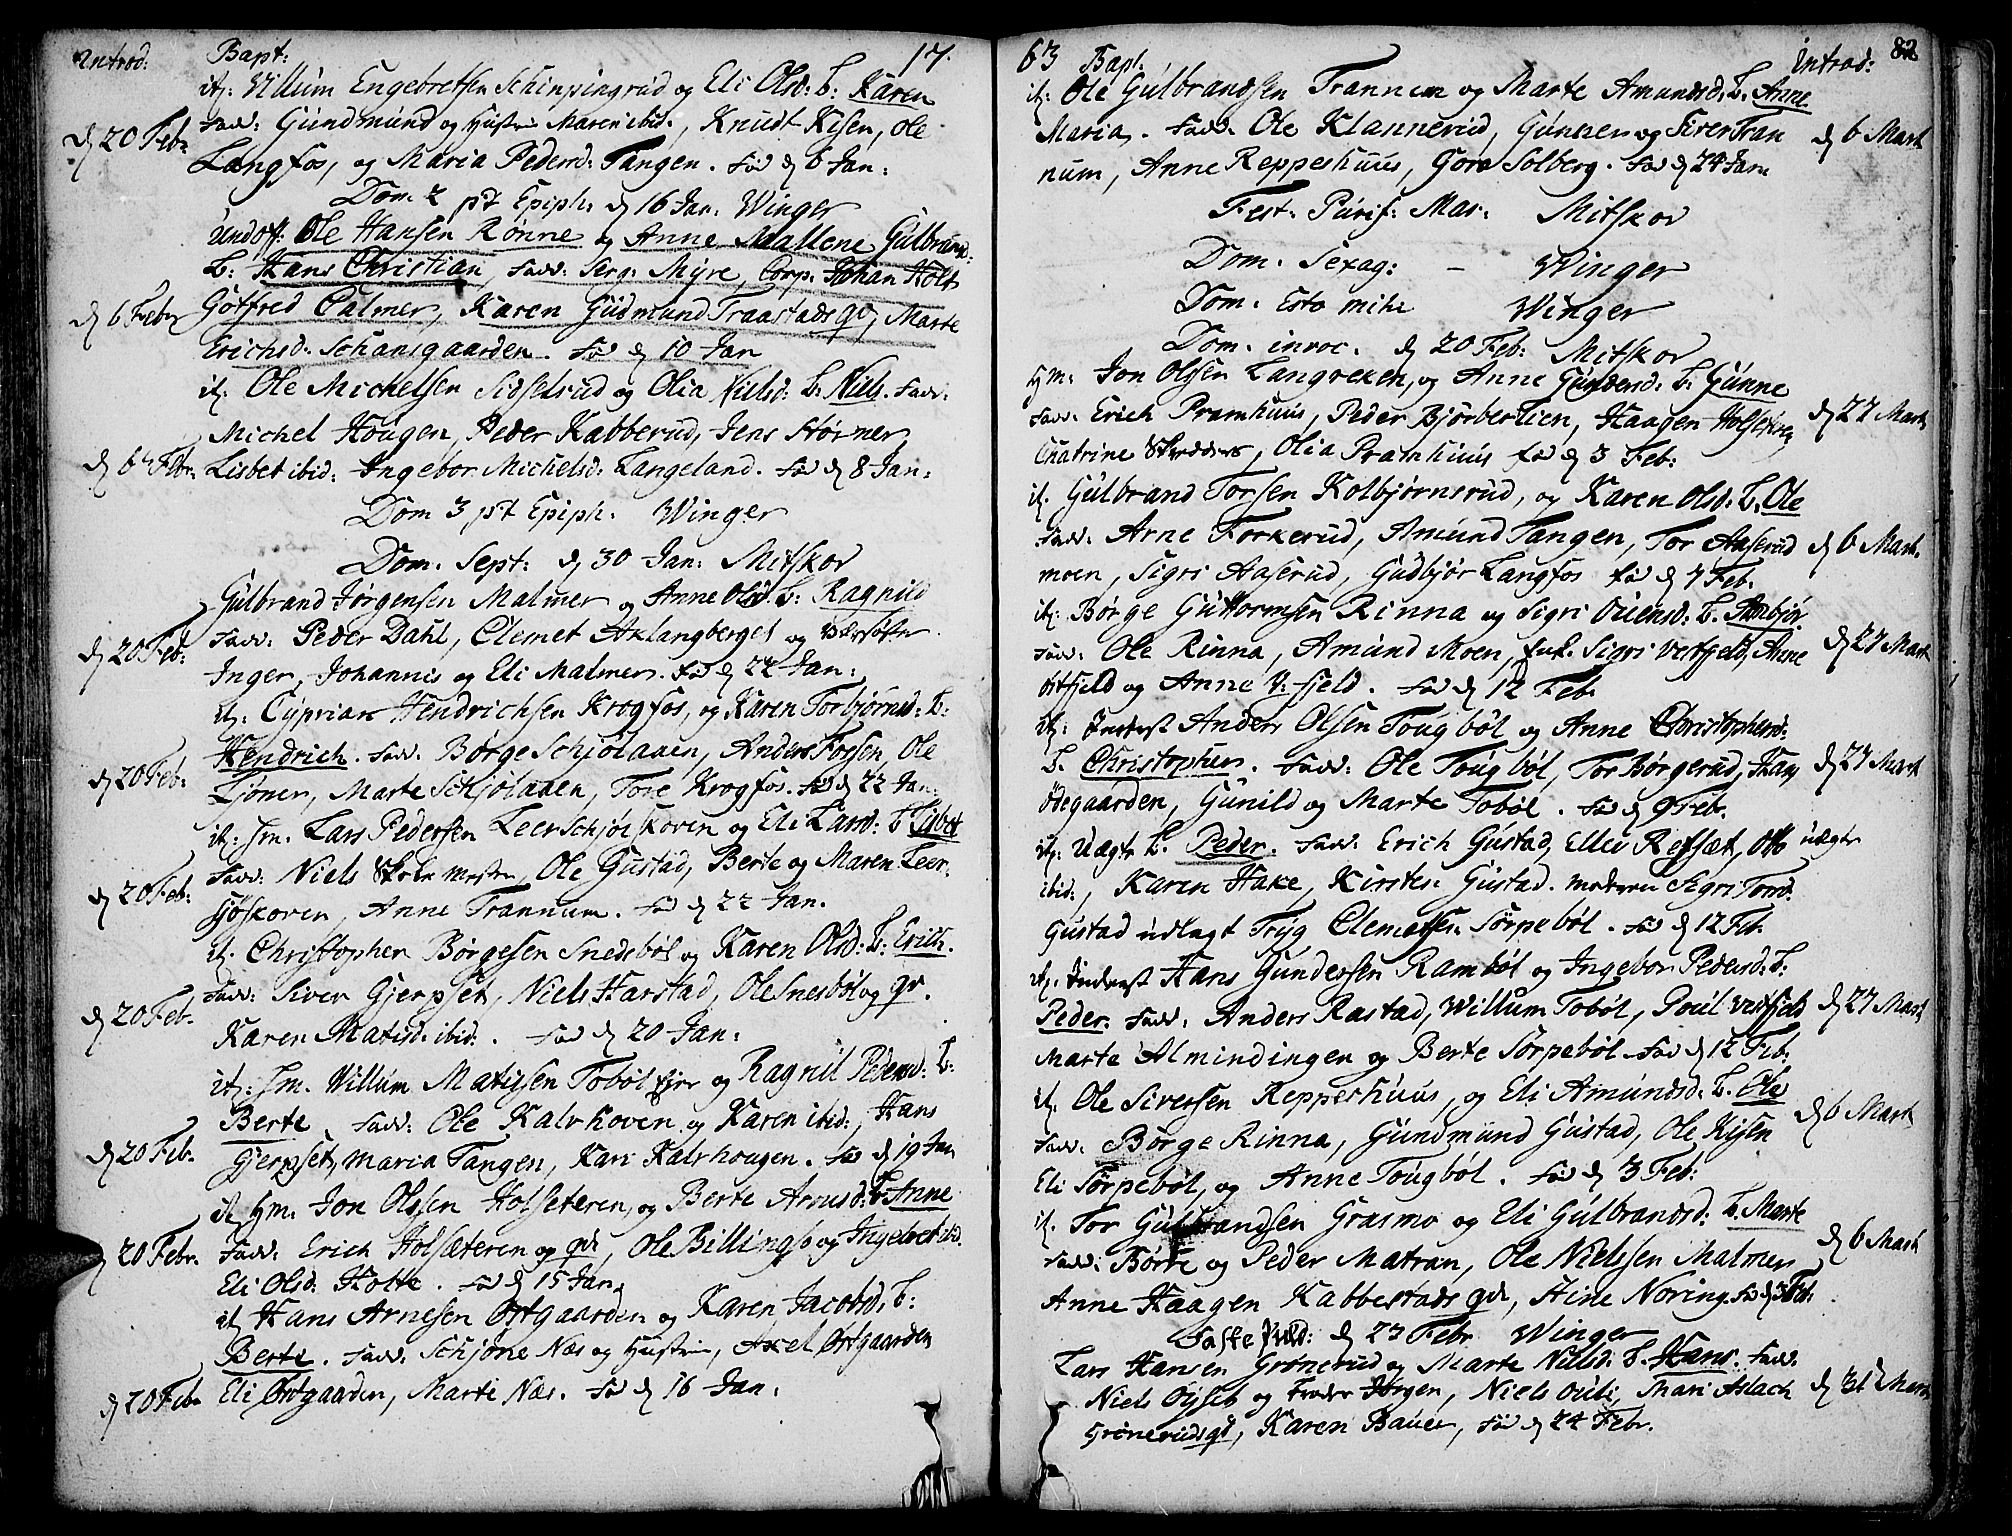 Introd: Bapt: 17.
it: Villum Engebretsen Schinpingrud og Eli Olsd: b: Karen
Fadd: Gundmund og Hustru Maren ibid:, Knudt Kisen, Ole
d 20 Febr
Langfos, og Maria Pedersd: Tangen. Fød d 6 Jan:
Dom 2 pst Epiph: d 16 Jan: Winger
Und off: Ole Hansen Rønne og Anne Mallene Gulbrand:
b: Hans Christian, Fadd: Serg: Myre, Corp: Johan Holt
d 6 Febr Gotfred Calmer, Karen Gudmund Traastads qv, Marte
Erichsd: Schansgaarden. Fød d 10 Jan
it: Ole Michelsen Sidselrud og Olia Nielsd: b: Niels. Fadd:
Michel Hougen, Peder Kabberud, Jens Størmer,
d 6 Febr. Lisbet ibid: Ingebor Michelsd: Langeland. Fød d 8 Jan:
Dom 3 pst Epiph: Winger
Dom. Sept: d 30 Jan: Mitskov
Gulbrand Jørgensen Malmer og Anne Olsd: b: Ragnild
d 20 Feb: Fadd: Peder Dahl, Clemet Axlangberget og
Inger, Johannis og Eli Malmer. Fød d 22 Jan:
it: Cyprian Hendrichsen Krogfos, og Karen Torbjørnsd: b:
d 20 Feb: Hendrich. Fadd: Børge Schjølaaen, Anders Fossen, Ole
Ljøner, Marte Schjølaaen, Tore Krogfos. Fød d 22 Jan:
it: Hm. Lars Pedersen Leerschjøeskoven og Eli Larsd: b Lisbet
d 20 Feb: Fadd: Niels Skole mester, Ole Gustad, Berte og Maren Leer
sjøskoven, Anne Trannum. Fød d 22 Jan.
it. Christopher Børgesen Snedsbøl og Karen Olsd: b: Erich.
d 20 Feb. Fadd: Siver Gjerpset, Niels Harstad, Ole Snesbøl og qv.
Karen Matisd: ibid:. Fød d 20 Jan:
it: Hm. Villum Matissen Tobøl ejer og Ragnil Pedersd: b:
Berte. Fadd: Ole Kalvhoven og Karen ibid:, Hans
d 20 Feb. Gjerpset, Maria Tangen, Kari Kalvhougen. Fød d 19 Jan
it Hm: Jon Olssen Holseteren, og Berte Arnesd: b: Anne
d 20 Febr. Fadd: Erich Holsæteren og qv, Ole Billingsø og Ingebret ibd.
Eli Olsd: Holte. Fød d 15 Jan,
it Hans Arnesen Østgaarden og Karen Jacobsd: b:
Berte. Fadd: Schjøne Næs og Hustru, Axel Østgaarden
d 20 Feb Eli Østgaarden, Marte Næs. Fød d 16 Jan:
63 Bapt. Introd: 82
it: Ole Gulbrandsen Trannum og Marte Amundsd: b. Anne
Maria. Fadd: Ole Klannerud, Gunner og Siver Tran d 6 Mart
num, Anne Reppeshuus, Goro Solberg. Fød d 24 Jan:
Fest: Purif: Mar: Mitskov
Dom. Sexag: - Winger
Dom. Esto mihi Winger
Dom. invoc. d 20 Feb: Mitskov
Hm: Jon Olsen Langreken, og Anne Gundersd: b: Gunne
Fadd: Erich Pramhuus, Peder Bjørbertien, Haagen Holseteren d 27 Mart
Chatrine, Olia Pramhuus fød d 3 Feb:
it. Gulbrand Torsen Kolbjørnsrud, og Karen Olsd: b. Ole
Fadd: Arne Forkerud, Amund Tangen, Tor Aaserud d 6 Mart.
moen, Sigri Aaserud, Gudbjør Langfos fød d 7 Feb.
it: Børge Guttormsen Rinna og Sigri Ouensd: b. Anbjør.
Fadd: Ole Rinna, Amund Moen, Enk. Sigri Vestfjeld, Anne d 27 Mart
Østfjeld og Anne V: fjeld. Fød d 12 Feb.
it: Inderst Anders Olsen Tougbøl og Anne Christophersd:
b. Christopher. Fadd: Ole Tougbøl, Tor Børgerud, Hans d 27 Mart
Ødegaarden, Gunild og Marte Tobøl. Fød d 9 Feb.
it: Uægte b. Peder. Fadd: Erich Gustad, Elles Refsæt, Ole uægte
ibid:, Karen Hake, Kirsten Gustad. moderen Sigri Torsd:
Gustad udlagt Tryg Clemetsen Sørpebøl. Fød d 12 Feb.
it. Inderst Hans Gundersen Rambøl og Ingebor Pedersd: b:
Peder. Fadd: Anders Rastad, Willum Tobøl, Poul Vestfjeld d 27 Mart
Marte Almindingen og Berte Sørpebøl. Fød d 12 Feb:
it: Ole Siversen Reppeshuus, og Eli Amundsd: b. Ola
Fadd: Børge Rinna, Gundmund Gustad, Ole Kisen d 6 Mart
Eli Sørpebøl, og Anne Tougbøl. Fød d 3 Feb:
it. Tor Gulbrandsen Grasmo og Eli Gulbrandsd: b. Marte
Fadd: Børre og Peder Matran, Ole Nielsen Malmer d 6 Mart
Anne Haagen Kabbestads qv, Stine Noring. Fød d 3 Feb.
Faste Præd: d 23 Febr Winger
Lars Hansen Grønerud og Marte Nielsd: b. Hans. Fadd:
Niels Øyset og Hogen, Niels Outi, Mari Aslach d 31 Mart
Grønerudsqv, Karen Bauer, Fød d 24 Febr.